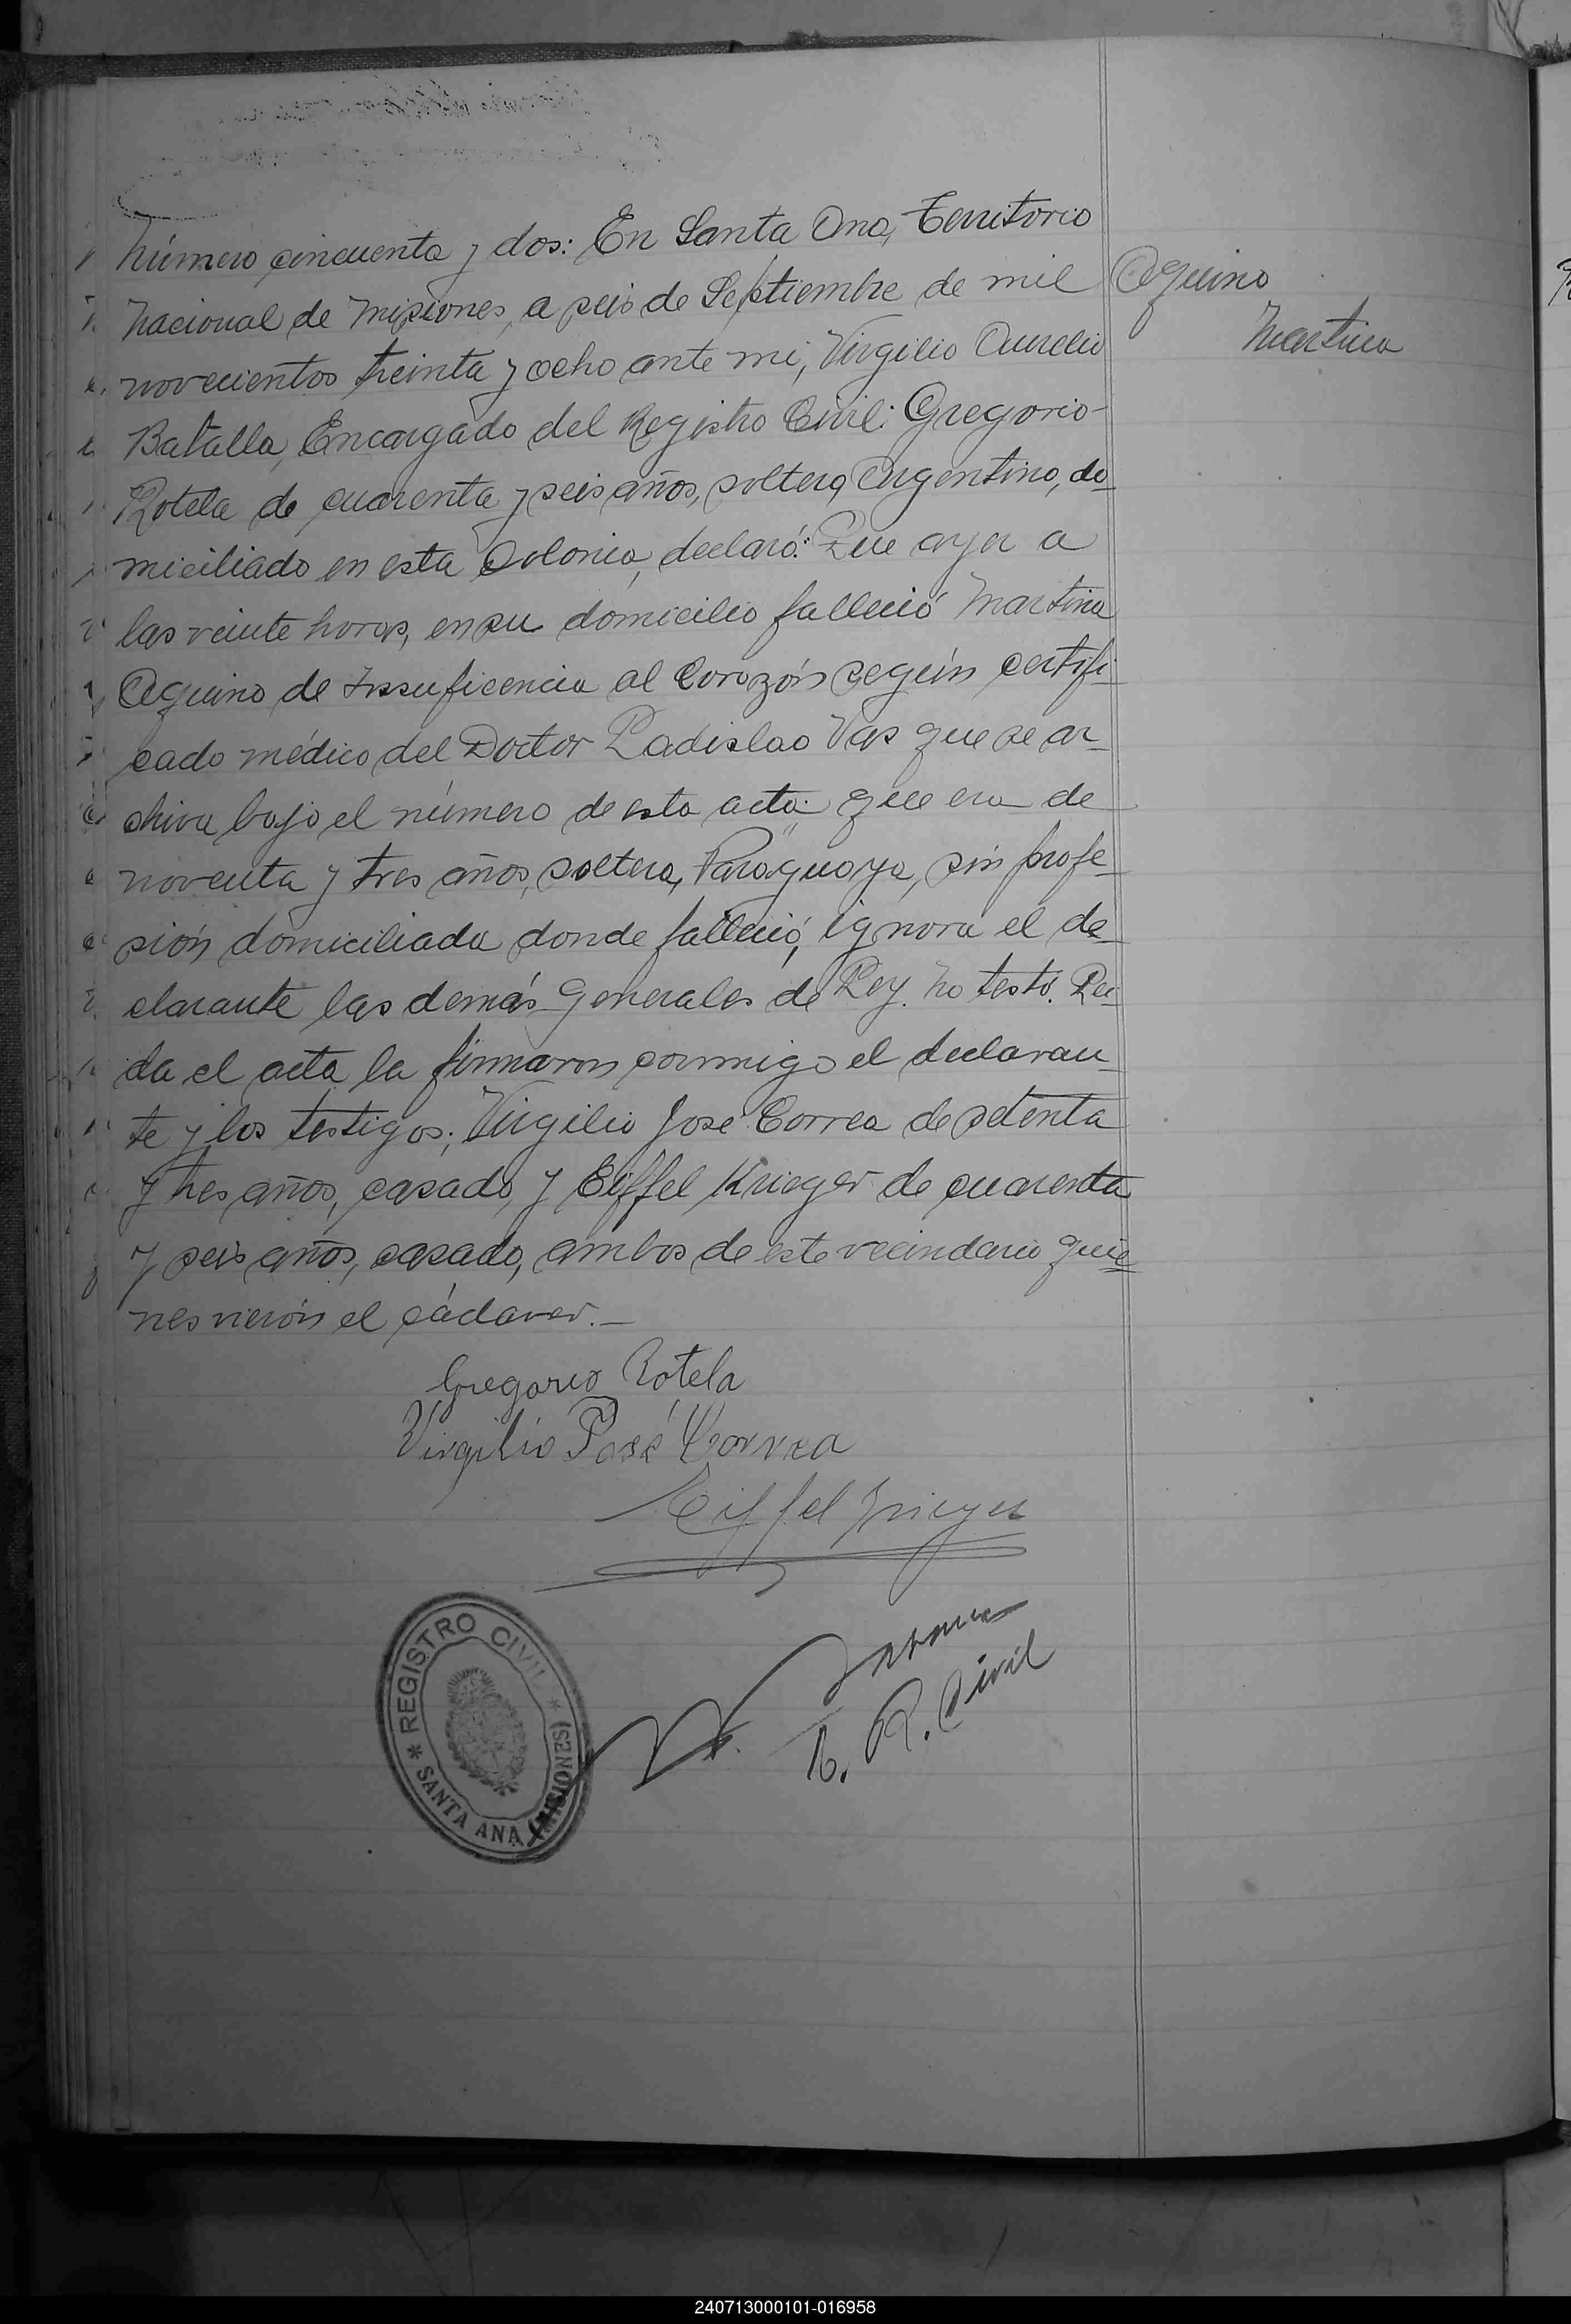 Número cincuenta y dos: En Santa Ana, Territorio
Nacional de Misiones, a seis de Septiembre de mil
novecientos treinta y ocho ante mi, Virgilio Aurelio
Batalla, Encargado del Registro Civil: Gregorio
Rotela de cuarenta y seis años, soltero, Argentino, do-
miciliado en esta Colonia, declaró: Que ayer a
las veinte horas, en su domicilio falleció Martina
Aquino de Insuficencia al Corazón según certifi-
cado médico del Doctor Ladislao Vas que se ar-
chiva bajo el número de esta acta: que era de
noventa y tres años, soltera, Paraguaya, sin profe-
sión domiciliada donde falleció, ignora el de-
clarante las demás generales de Ley. No testó. Lei-
da el acta la firmaron conmigo el declaran-
te y los testigos; Virgilio José Correa de setenta
y tres años, casado, y Eiffel Krieger de cuarenta
y seis años, casado, ambos de este vecindario quie-
nes vierón el cádaver.—
Aquino
Martina
Gregorio Rotela
Virgilio José Correa
Eiffel Krieger
R. Civil
* REGISTRO CIVIL * SANTA ANA (MISIONES)
240713000101-016958